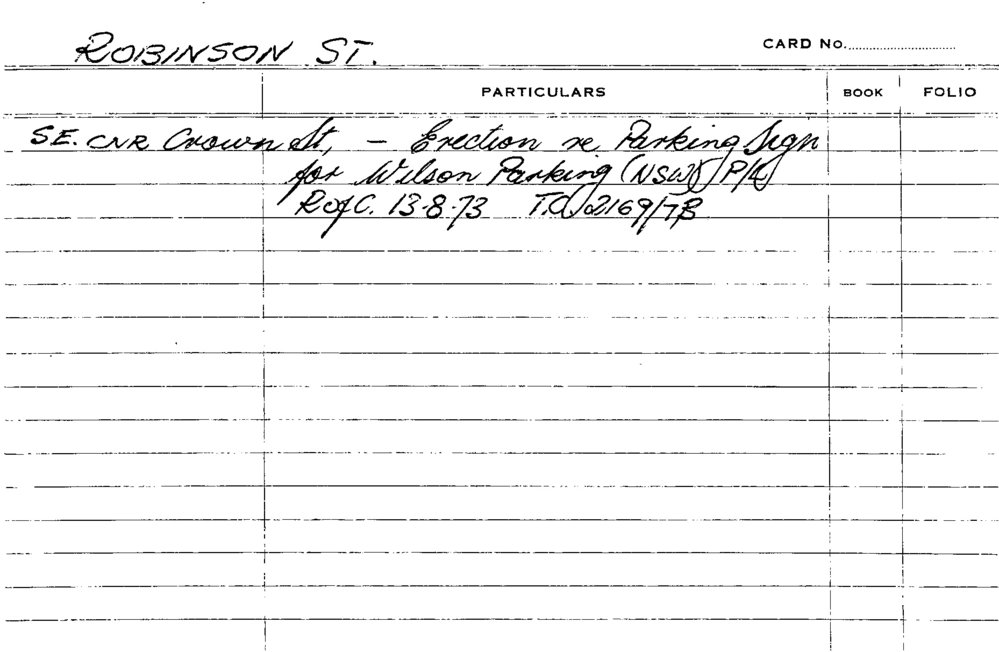 ROBINSON ST.
CARD No.
PARTICULARS BOOK FOLIO
S.E. CNR Crown St, - Erection re Parking Sign
for Wilson Parking (NSW) P/L
R of C. 13-8-73 T.C. 2169/73